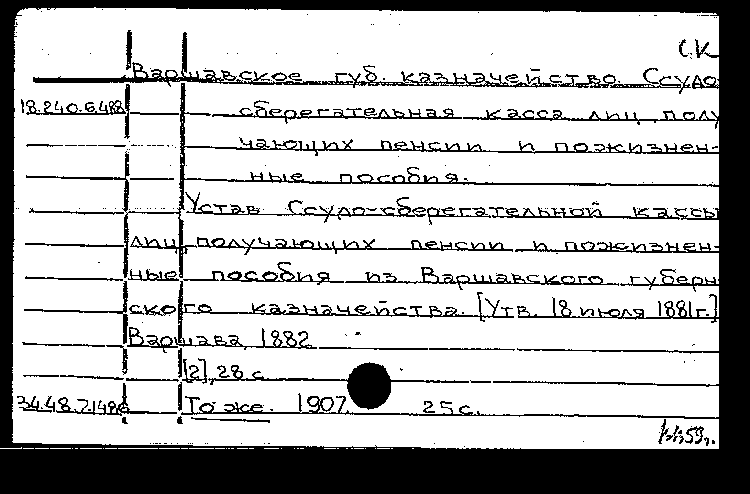 СК
Варшавское губ. казначейство. Ссудо-
18.240.6.488 сберегательная касса лиц полу
чающих пенсии и пожизнен-
ные пособия.
Устав Ссудо-сберегательной кассы
лиц получающих пенсии и пожизнен-
ные пособия из Варшавского губерн
ского казначейства. [Утв. 18 июля 1881г.]
Варшава, 1882
[2], 28 с.
То же. 1907 25 с.